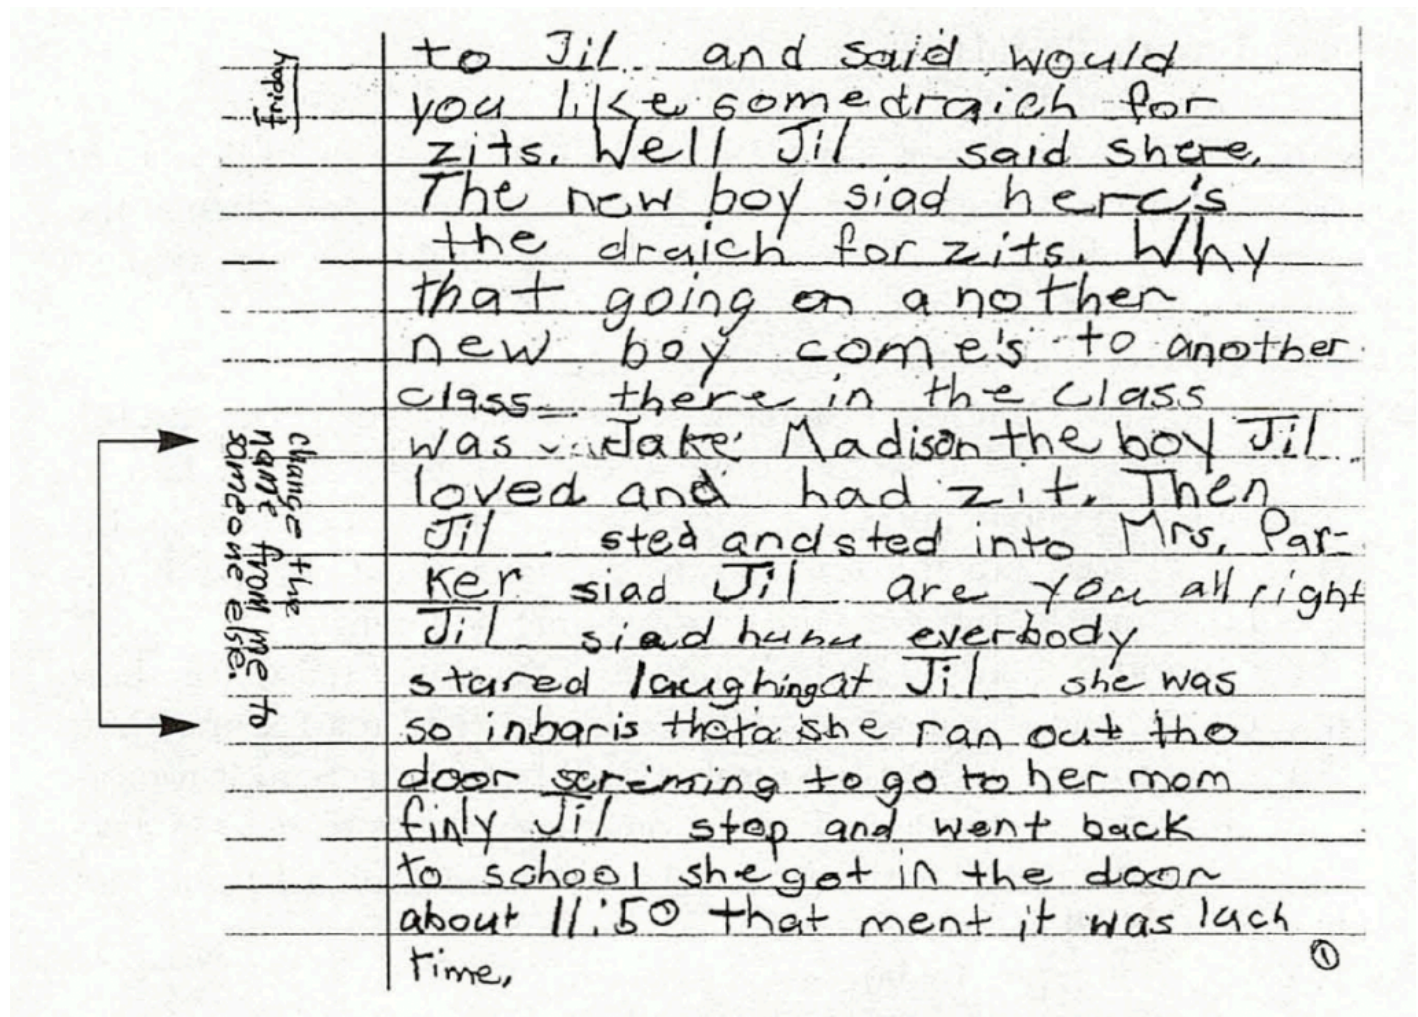 Friday
to Jil and said would
you like somedraich for
zits. Well Jil said shere.
The new boy siad here's
the draich for zits. Why
that going on another
new boy come's to another
class there in the class
was Jake Madison the boy Jil
loved and had zit. Then
Jil sted andsted into Mrs. Par-
ker siad Jil are you all right
Jil siad huhu everbody
stared laughingat Jil she was
so inbaris theta she ran out the
door scriming to go to her mom
finly Jil stop and went back
to school she got in the door
about 11:50 that ment it was lach
time.
change the
name from me to
someone else.
1